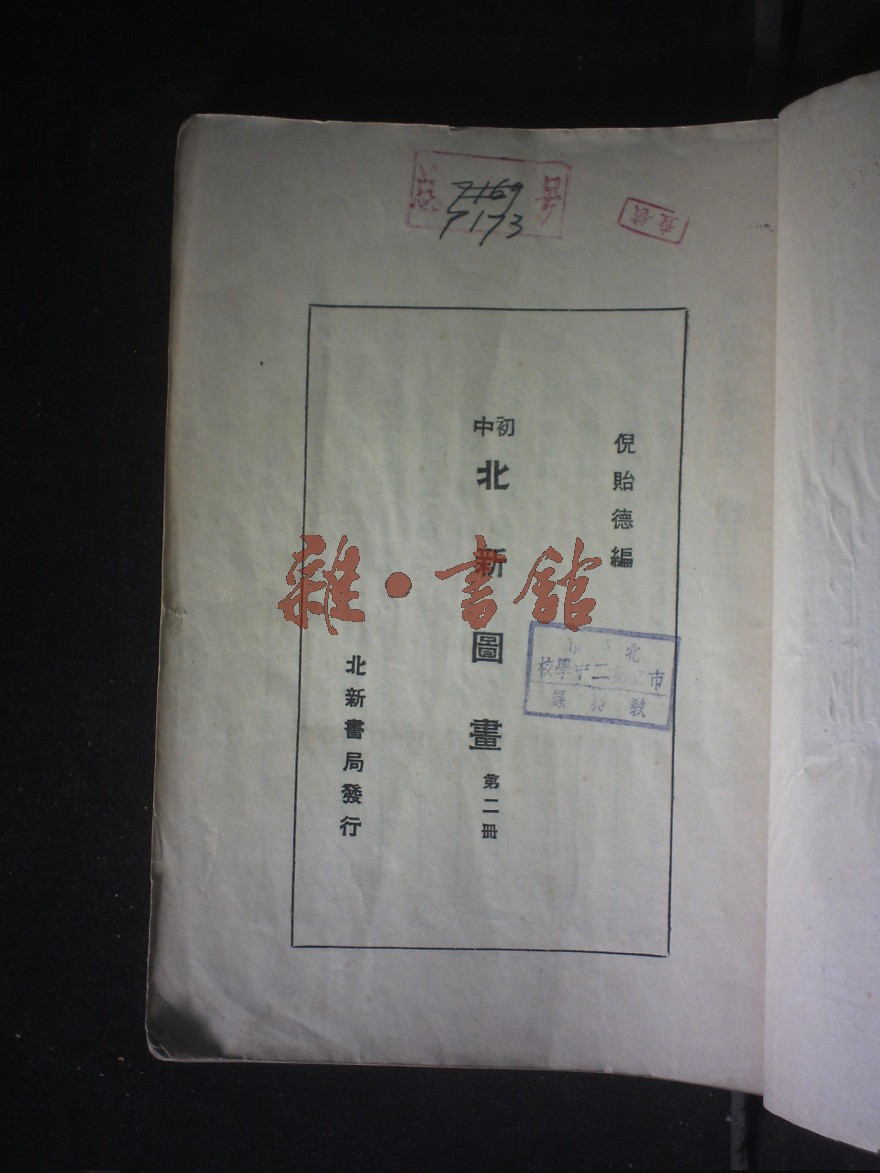 7169
7173
查儀
倪貽德編
初中
北新圖畫
第二冊
北新書局發行
北
市立第二中學校
教務課
雜·書館